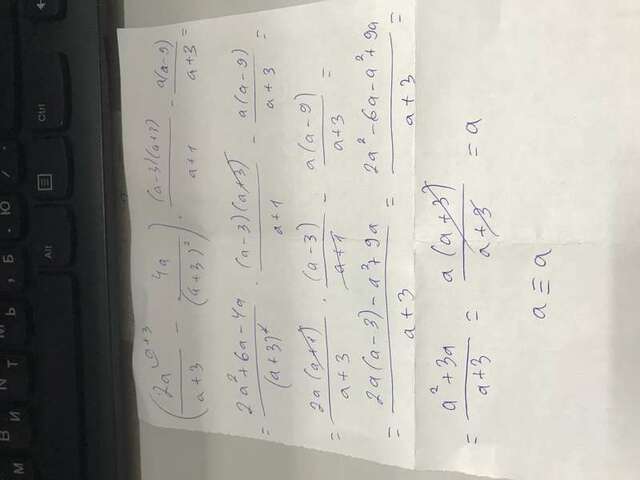 м В И Т М Ь , Б . Ю / .
Alt Ctrl
(2a^{a+3}/(a+3) - 4a/(a+3)²) · (a-3)(a+3)/(a+1) - a(a-9)/(a+3) =
= (2a²+6a-4a)/(a+3)² · (a-3)(a+3)/(a+1) - a(a-9)/(a+3) =
= 2a(a+1)/(a+3) · (a-3)/(a+1) - a(a-9)/(a+3) =
= (2a(a-3)-a²+9a)/(a+3) = (2a²-6a-a²+9a)/(a+3) =
= (a²+3a)/(a+3) = a(a+3)/(a+3) = a
a ≡ a